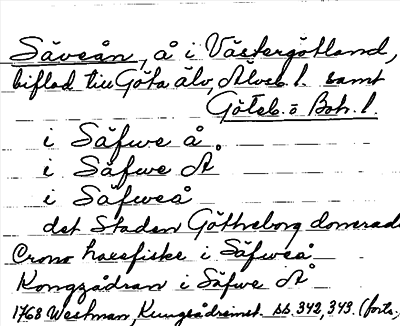 Säveån, å i Västergötland,
biflod till Göta älv, Älvsb. l. samt
Göteb. o Boh. l.
i Säfwe å.
i Säfwe Å
i Säfweå
det Staden Göttheborg donerade
Crono laxefiske i Säfweå
Kongzådran i Säfwe Å
1768 Westman, Kungsådreinst. ss. 342, 343. (forts.